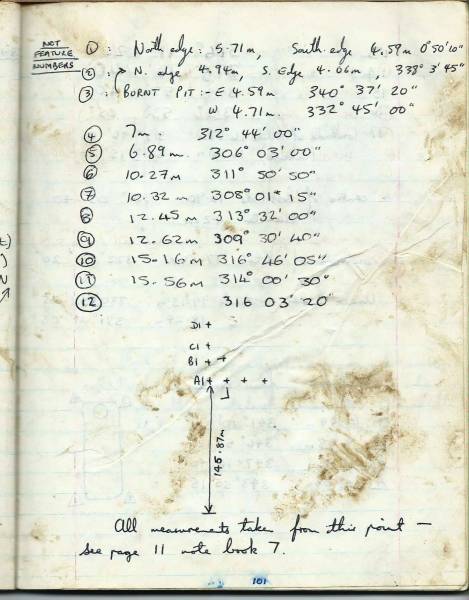 NOT FEATURE NUMBERS
① : North edge: 5.71m, South edge 4.59m 0° 50' 10"
② : N. edge 4.94m, S. Edge 4.06m 338° 3' 45"
③ : BURNT PIT :- E 4.59m 340° 37' 20"
W 4.71m. 332° 45' 00"
④ 7m. 312° 44' 00"
⑤ 6.89m. 306° 03' 00"
⑥ 10.27m 311° 50' 50"
⑦ 10.32m 308° 01' 15"
⑧ 12.45m 313° 32' 00"
⑨ 12.62m 309° 30' 40"
⑩ 15.16m 316° 46' 05"
⑪ 15.56m 314° 00' 30"
⑫ 316 03' 20"
D1 +
C1 +
B1 + +
A1 + + + +
145.87m
All measurements taken from this point —
see page 11 note book 7.
101